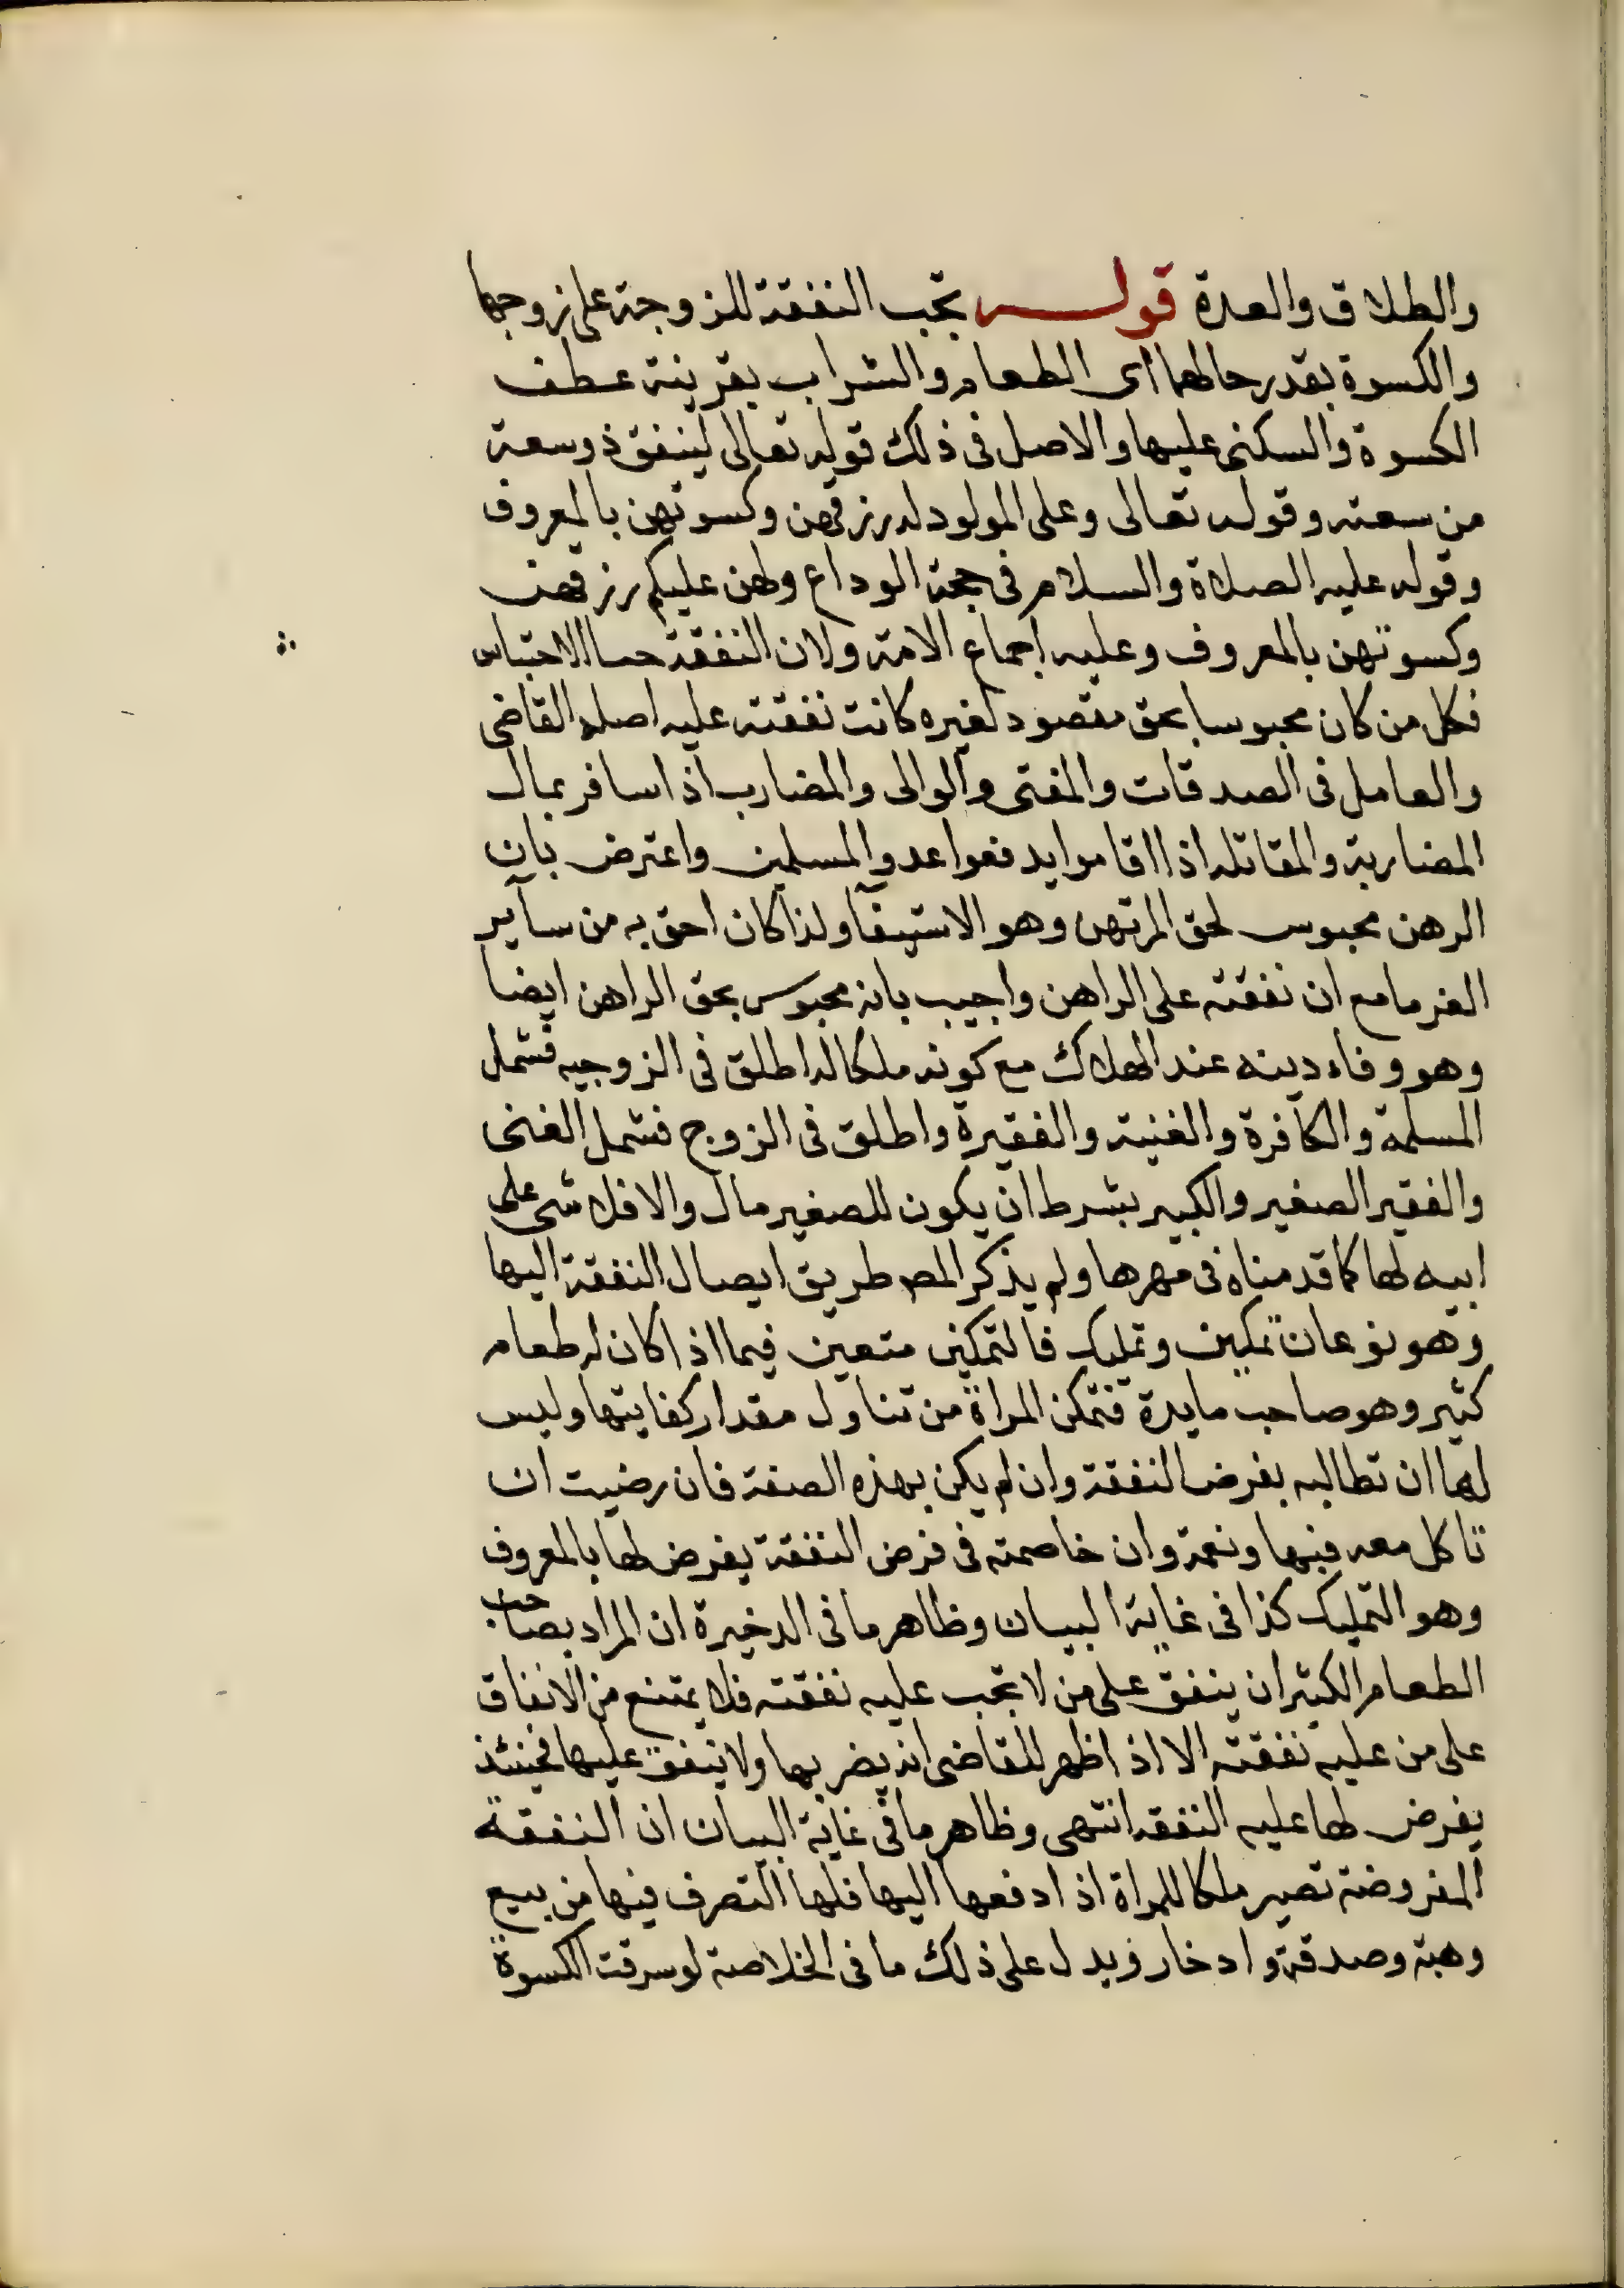 والطلاق والعدة قوله تجب النفقة للزوجة على زوجها
والكسوة بقدر حالهما اى الطعام والشراب بقرينة عطف
الكسوة والسكنى عليها والاصل فى ذلك قوله تعالى لينفق ذو سعة
من سعته وقوله تعالى وعلى المولود له رزقهن وكسوتهن بالمعروف
وقوله عليه الصلاة والسلام فى حجة الوداع ولهن عليكم رزقهن
وكسوتهن بالمعروف وعليه اجماع الامة ولان النفقة الاحتباس
فكل من كان محبوسا بحق مقصود لغيره كانت نفقته عليه اصله القاضى
والعامل فى الصدقات والمفتى والوالى والمضارب اذا سافر بمال
المضاربة والمقاتلة اذا اقاموا يدفعوا عدو المسلمين واعترض بان
الرهن محبوس لحق المرتهن وهو الاستيفآ ولذا كان احق به من سآير
الغرما مع ان نفقته على الراهن واجيب بانه محبوس بحق الراهن ايضا
وهو وفاء دينه عند الهلاك مع كونه ملكا له اطلق فى الزوجيه فشمل
المسلمة والكافرة والغنية والفقيرة واطلق فى الزوج فشمل الغنى
والفقير الصغير والكبير بشرط ان يكون للصغير مال والا فلا شى على
ابيه لها كما قدمناه فى مهرها ولم يذكر المص طريق ايصال النفقة اليها
وهو نوعان تمكين وتمليك فالتمكين متعين فيما اذا كان له طعام
كثير وهو صاحب مايدة فتمكن المراة من تناول مقدار كفايتها وليس
لها ان تطالبه بفرض النفقة وان لم يكن بهذه الصفة فان رضيت ان
تاكل معه فبها ونعمة وان خاصمته فى فرض النفقة يفرض لها بالمعروف
وهو التمليك كذا فى غاية البيان وظاهر ما فى الدخيرة ان المراد بصاحب
الطعام الكثير ان ينفق على من لا تجب عليه نفقته فلا يمتنع من الانفاق
على من عليه نفقته الا اذا ظهر للقاضى انه يضربها ولا ينفق عليها فحينئذ
يفرض لها عليه النفقه انتهى وظاهر ما فى غاية البيان ان النفقة
المفروضة تصير ملكا للمراة اذا دفعها اليها فلها التصرف فيها من بيع
وهبة وصدقة وادخار ويدل على ذلك ما فى الخلاصة لو سرقت الكسوة